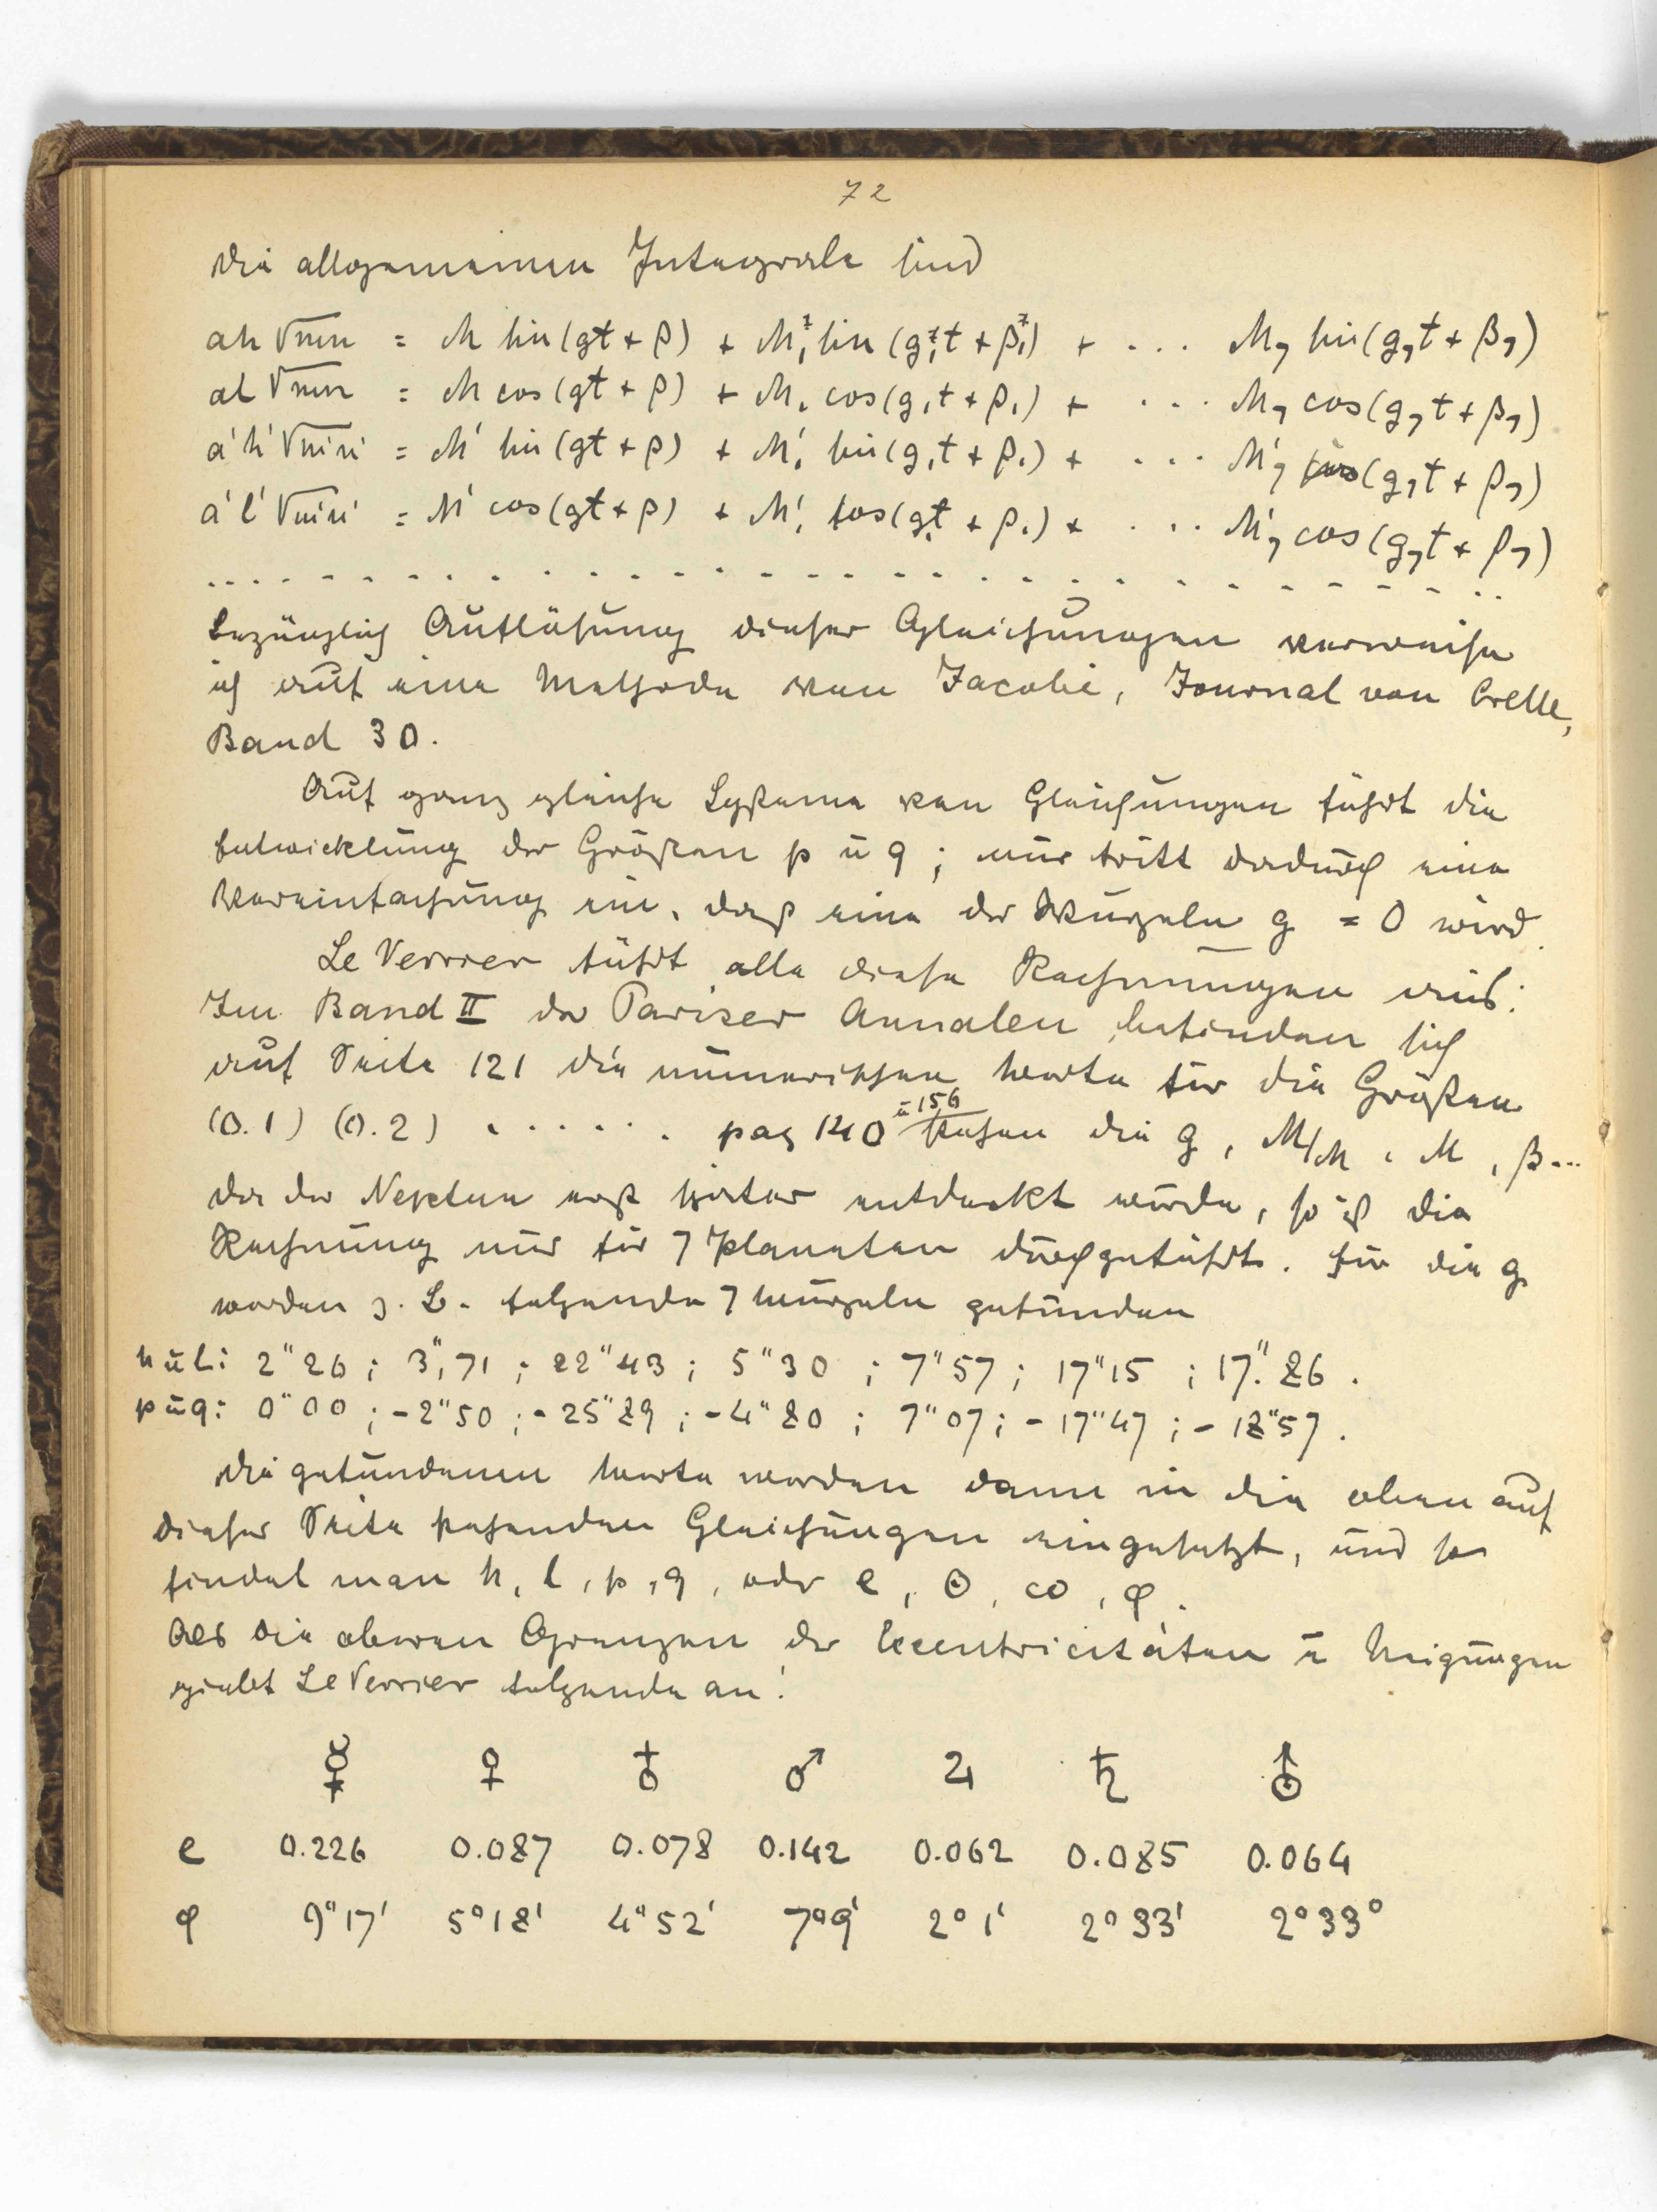 72
Die allgemeinen Integrale sind
ah √mn = M sin(gt + β) + M₁ sin(g₁t + β₁) + . . . M₇ sin(g₇t + β₇)
al √mn = M cos(gt + β) + M₁ cos(g₁t + β₁) + . . . M₇ cos(g₇t + β₇)
a'h' √m'n' = M' sin(gt + β) + M'₁ sin(g₁t + β₁) + . . . M'₇ sin(g₇t + β₇)
a'l' √m'n' = M' cos(gt + β) + M'₁ cos(g₁t + β₁) + . . . M'₇ cos(g₇t + β₇)
. . . . . . . . . . . . . . . . . . . . . . . . . . . . . .
bezüglich Auflösung dieser Gleichungen verweise
ich auf eine Methode von Jacobi, Journal von Crelle,
Band 30.
Auf ganz gleiche Systeme von Gleichungen führt die
Entwicklung der Größen p u q; nur tritt dadurch eine
Vereinfachung ein, daß eine der Wurzeln g = 0 wird.
Le Verrier führt alle diese Rechnungen aus:
Im Band II der Pariser Annalen befinden sich
auf Seite 121 die numerischen Werte für die Größen
(0.1) (0.2) . . . . . . pag 140 u 156 stehen die g, M/M, M, β...
Da der Neptun erst später entdeckt wurde, so ist die
Rechnung nur für 7 Planeten durchgeführt. Für die g
werden z. B. folgende 7 Wurzeln gefunden
h u l: 2"26; 3",71; 22"43; 5"30; 7"57; 17"15; 17."86.
p u q: 0"00; -2"50; -25"89; -4"80; 7"07; -17"47; -18"57.
Die gefundenen Werte werden dann in die oben auf
dieser Seite stehenden Gleichungen eingesetzt, und so
findet man h, l, p, q, oder e, Θ, ω, φ.
Als die oberen Grenzen der Excentricitäten u Neigungen
giebt Le Verrier folgende an:
☿ ♀ ♁ ♂ ♃ ♄ ⛢
e 0.226 0.087 0.078 0.142 0.062 0.085 0.064
φ 9°17' 5°18' 4°52' 7°9' 2°1' 2°33' 2°33°